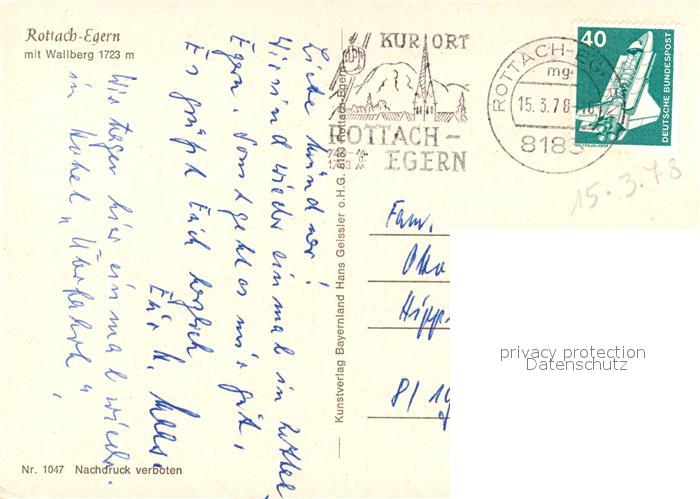 Rottach-Egern
mit Wallberg 1723 m
Liebe
Wir sind wieder einmal in Rottach
Egern. Sonst geht es mir gut,
Es grüßt Euch herzlich
Wir tagen hier einmal wieder
im Hotel "Überfahrt".
Nr. 1047 Nachdruck verboten
Kunstverlag Bayernland Hans Geissler o.H.G. 8183 Rottach-Egern
KURORT
ROTTACH-
EGERN
ROTTACH-EG
mg
15.3.78
8183
40
DEUTSCHE BUNDESPOST
15.3.78
Fam.
Otto
81
privacy protection
Datenschutz